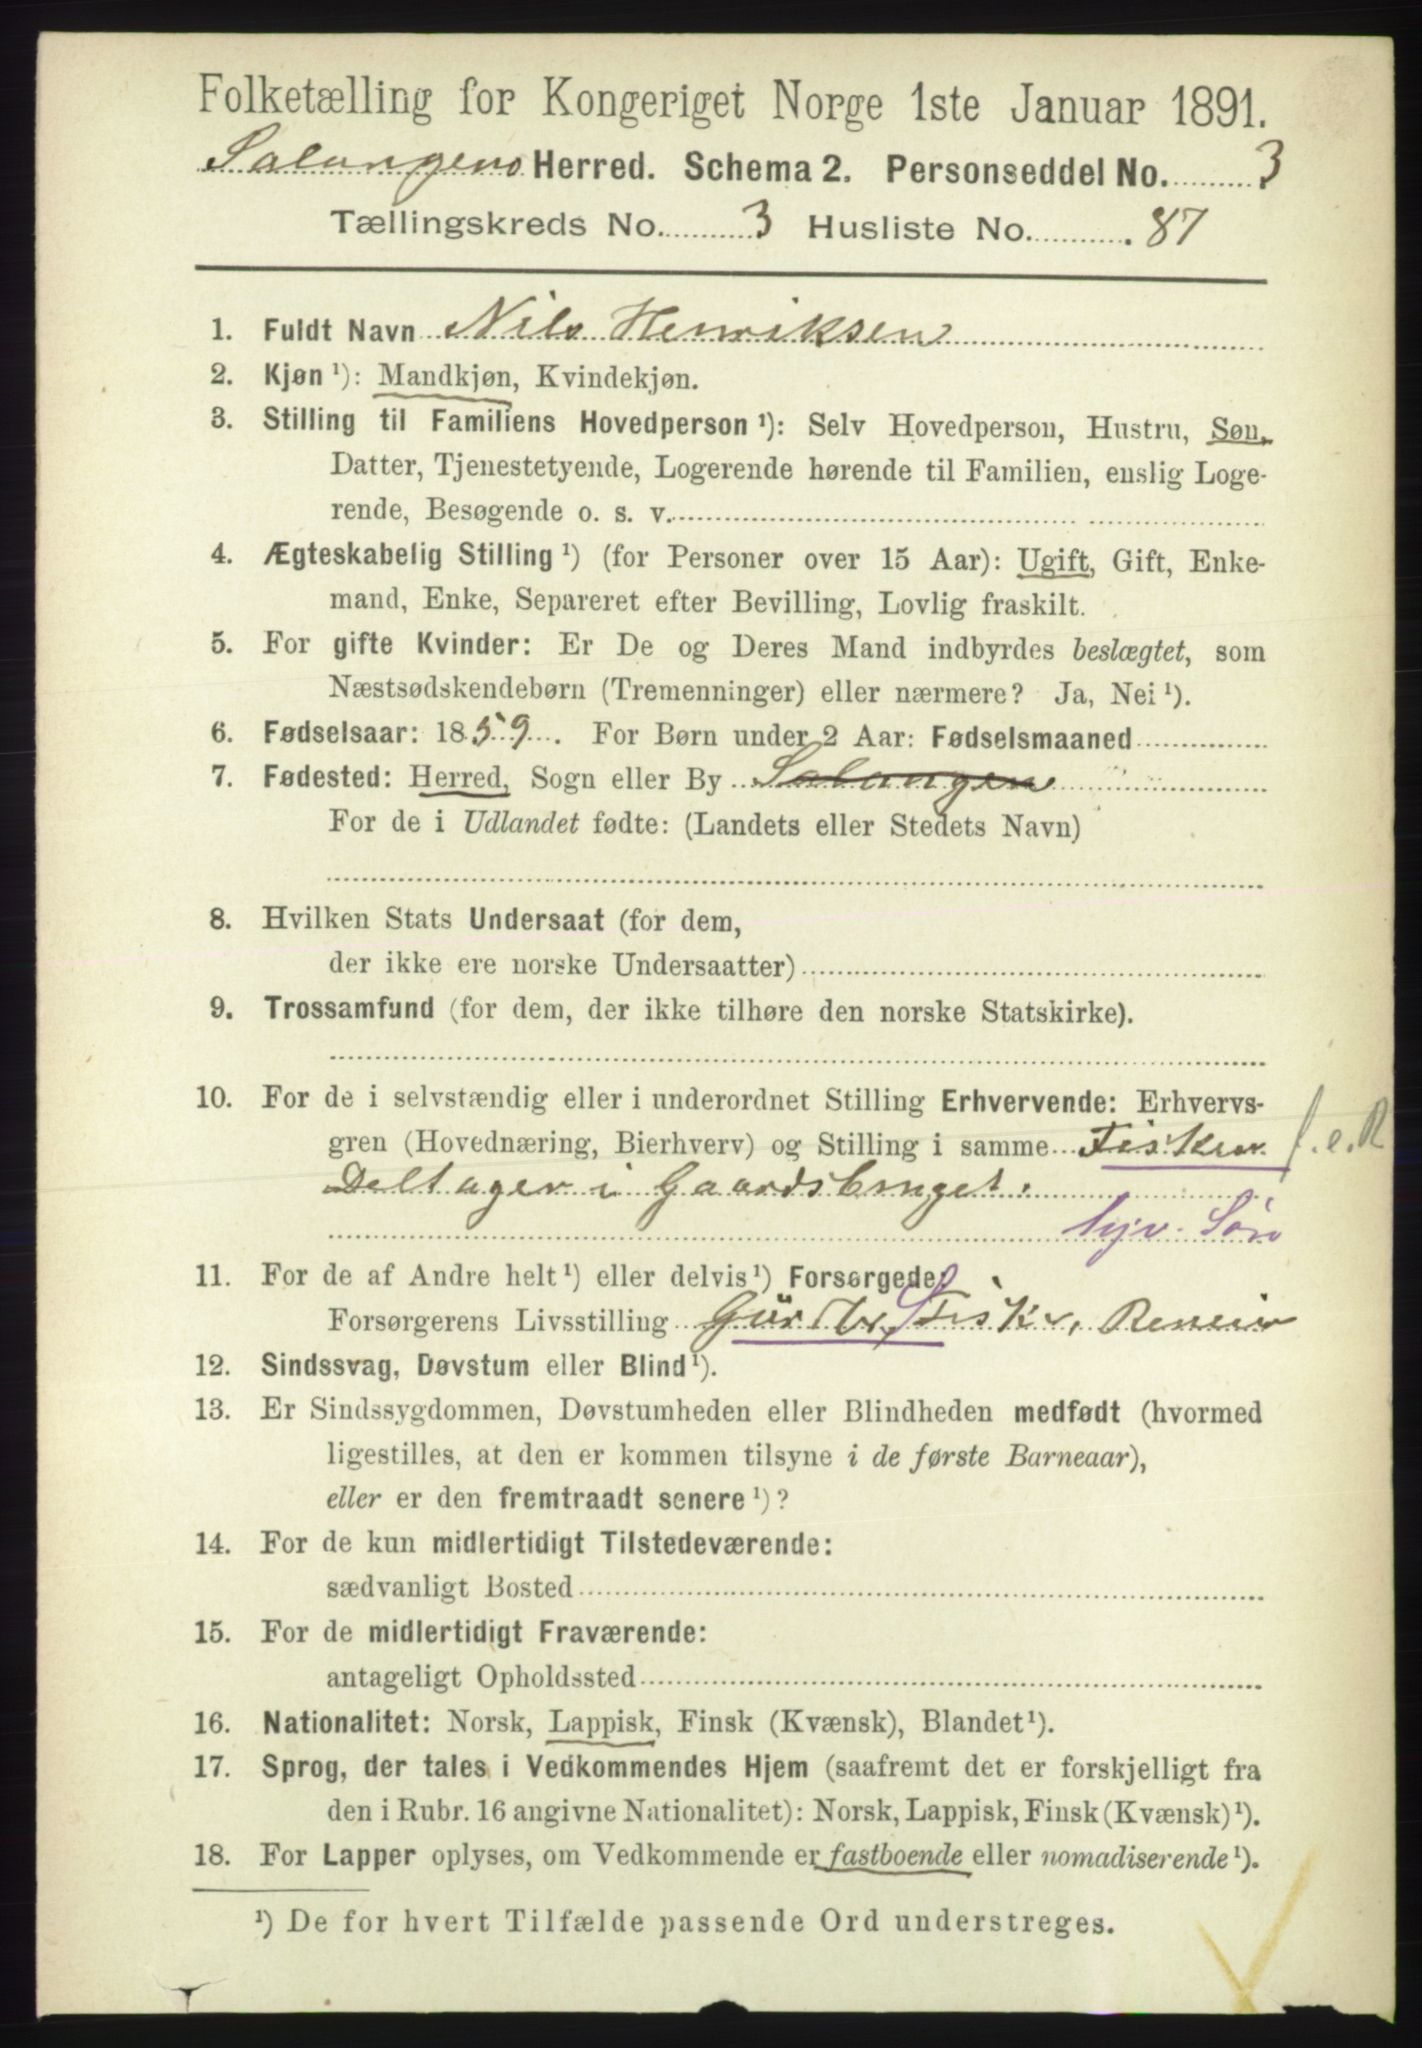 Folketælling for Kongeriget Norge 1ste Januar 1891.
Salangens Herred. Schema 2. Personseddel No. 3
Tællingskreds No. 3 Husliste No. 87
1. Fuldt Navn Nils Henriksen
2. Kjøn ¹): Mandkjøn, Kvindekjøn.
3. Stilling til Familiens Hovedperson ¹): Selv Hovedperson, Hustru, Søn,
Datter, Tjenestetyende, Logerende hørende til Familien, enslig Loge-
rende, Besøgende o. s. v.
4. Ægteskabelig Stilling ¹) (for Personer over 15 Aar): Ugift, Gift, Enke-
mand, Enke, Separeret efter Bevilling, Lovlig fraskilt.
5. For gifte Kvinder: Er De og Deres Mand indbyrdes beslægtet, som
Næstsødskendebørn (Tremenninger) eller nærmere? Ja, Nei ¹).
6. Fødselsaar: 1859. For Børn under 2 Aar: Fødselsmaaned
7. Fødested: Herred, Sogn eller By Salangen
For de i Udlandet fødte: (Landets eller Stedets Navn)
8. Hvilken Stats Undersaat (for dem,
der ikke ere norske Undersaatter)
9. Trossamfund (for dem, der ikke tilhøre den norske Statskirke).
10. For de i selvstændig eller i underordnet Stilling Erhvervende: Erhvervs-
gren (Hovednæring, Bierhverv) og Stilling i samme Fisker f.e.R
Deltager i Gaardsbruget.
hjv. Søn
11. For de af Andre helt ¹) eller delvis ¹) Forsørgede:
Forsørgerens Livsstilling Fisker,
12. Sindssvag, Døvstum eller Blind ¹).
13. Er Sindssygdommen, Døvstumheden eller Blindheden medfødt (hvormed
ligestilles, at den er kommen tilsyne i de første Barneaar),
eller er den fremtraadt senere ¹)?
14. For de kun midlertidigt Tilstedeværende:
sædvanligt Bosted
15. For de midlertidigt Fraværende:
antageligt Opholdssted
16. Nationalitet: Norsk, Lappisk, Finsk (Kvænsk), Blandet ¹).
17. Sprog, der tales i Vedkommendes Hjem (saafremt det er forskjelligt fra
den i Rubr. 16 angivne Nationalitet): Norsk, Lappisk, Finsk (Kvænsk) ¹).
18. For Lapper oplyses, om Vedkommende er fastboende eller nomadiserende ¹).
¹) De for hvert Tilfælde passende Ord understreges.